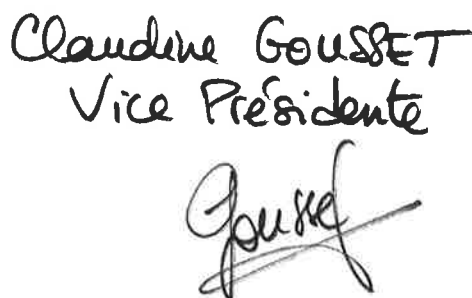 Claudine GOUSSET
Vice Présidente
Gousset